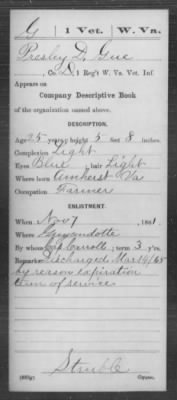 G | 1 Vet. | W. Va.
Presley D. Gue
, Co. D, 1 Reg't W. Va. Vet. Inf.
Appears on
Company Descriptive Book
of the organization named above.
DESCRIPTION.
Age 25 years; height 5 feet 8 inches.
Complexion Light
Eyes Blue ; hair Light
Where born Amherst Va
Occupation Farmer
ENLISTMENT.
When Nov 7 , 1861.
Where Guyandotte
By whom Cap Carroll ; term 3 y'rs.
Remarks: Discharged Mar 19/65
by reason expiration
term of service
Struble
Copyist.